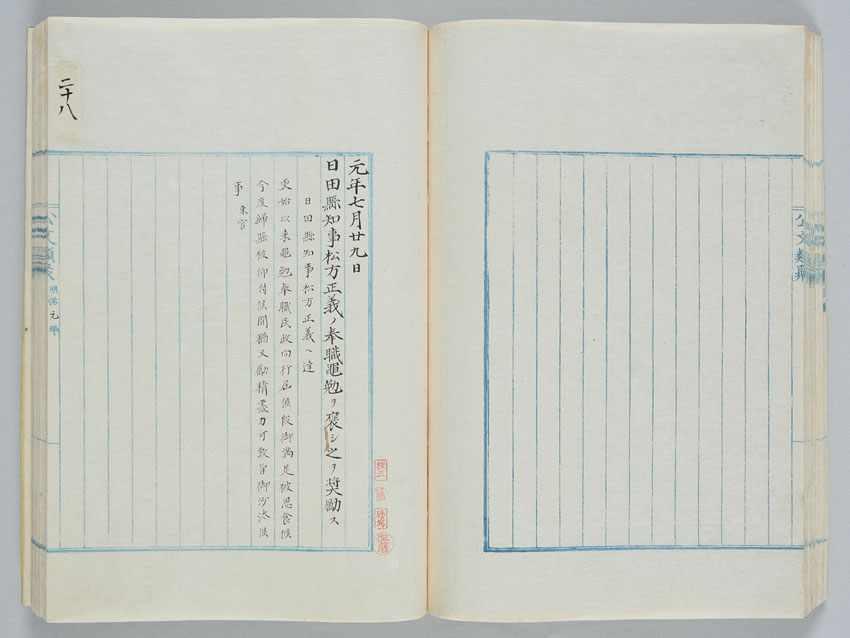 公文類聚
元年七月廿九日
日田縣知事松方正義ノ奉職黽勉ヲ褒シ之ヲ奨勵ス
日田縣知事松方正義ヘ達
更始以来黽勉奉職民政向行届候段御満足被思食候
今度歸縣被仰付候間猶又勵精盡力可致旨御沙汰候
事 東官
二十八
公文類聚
明治元
校正